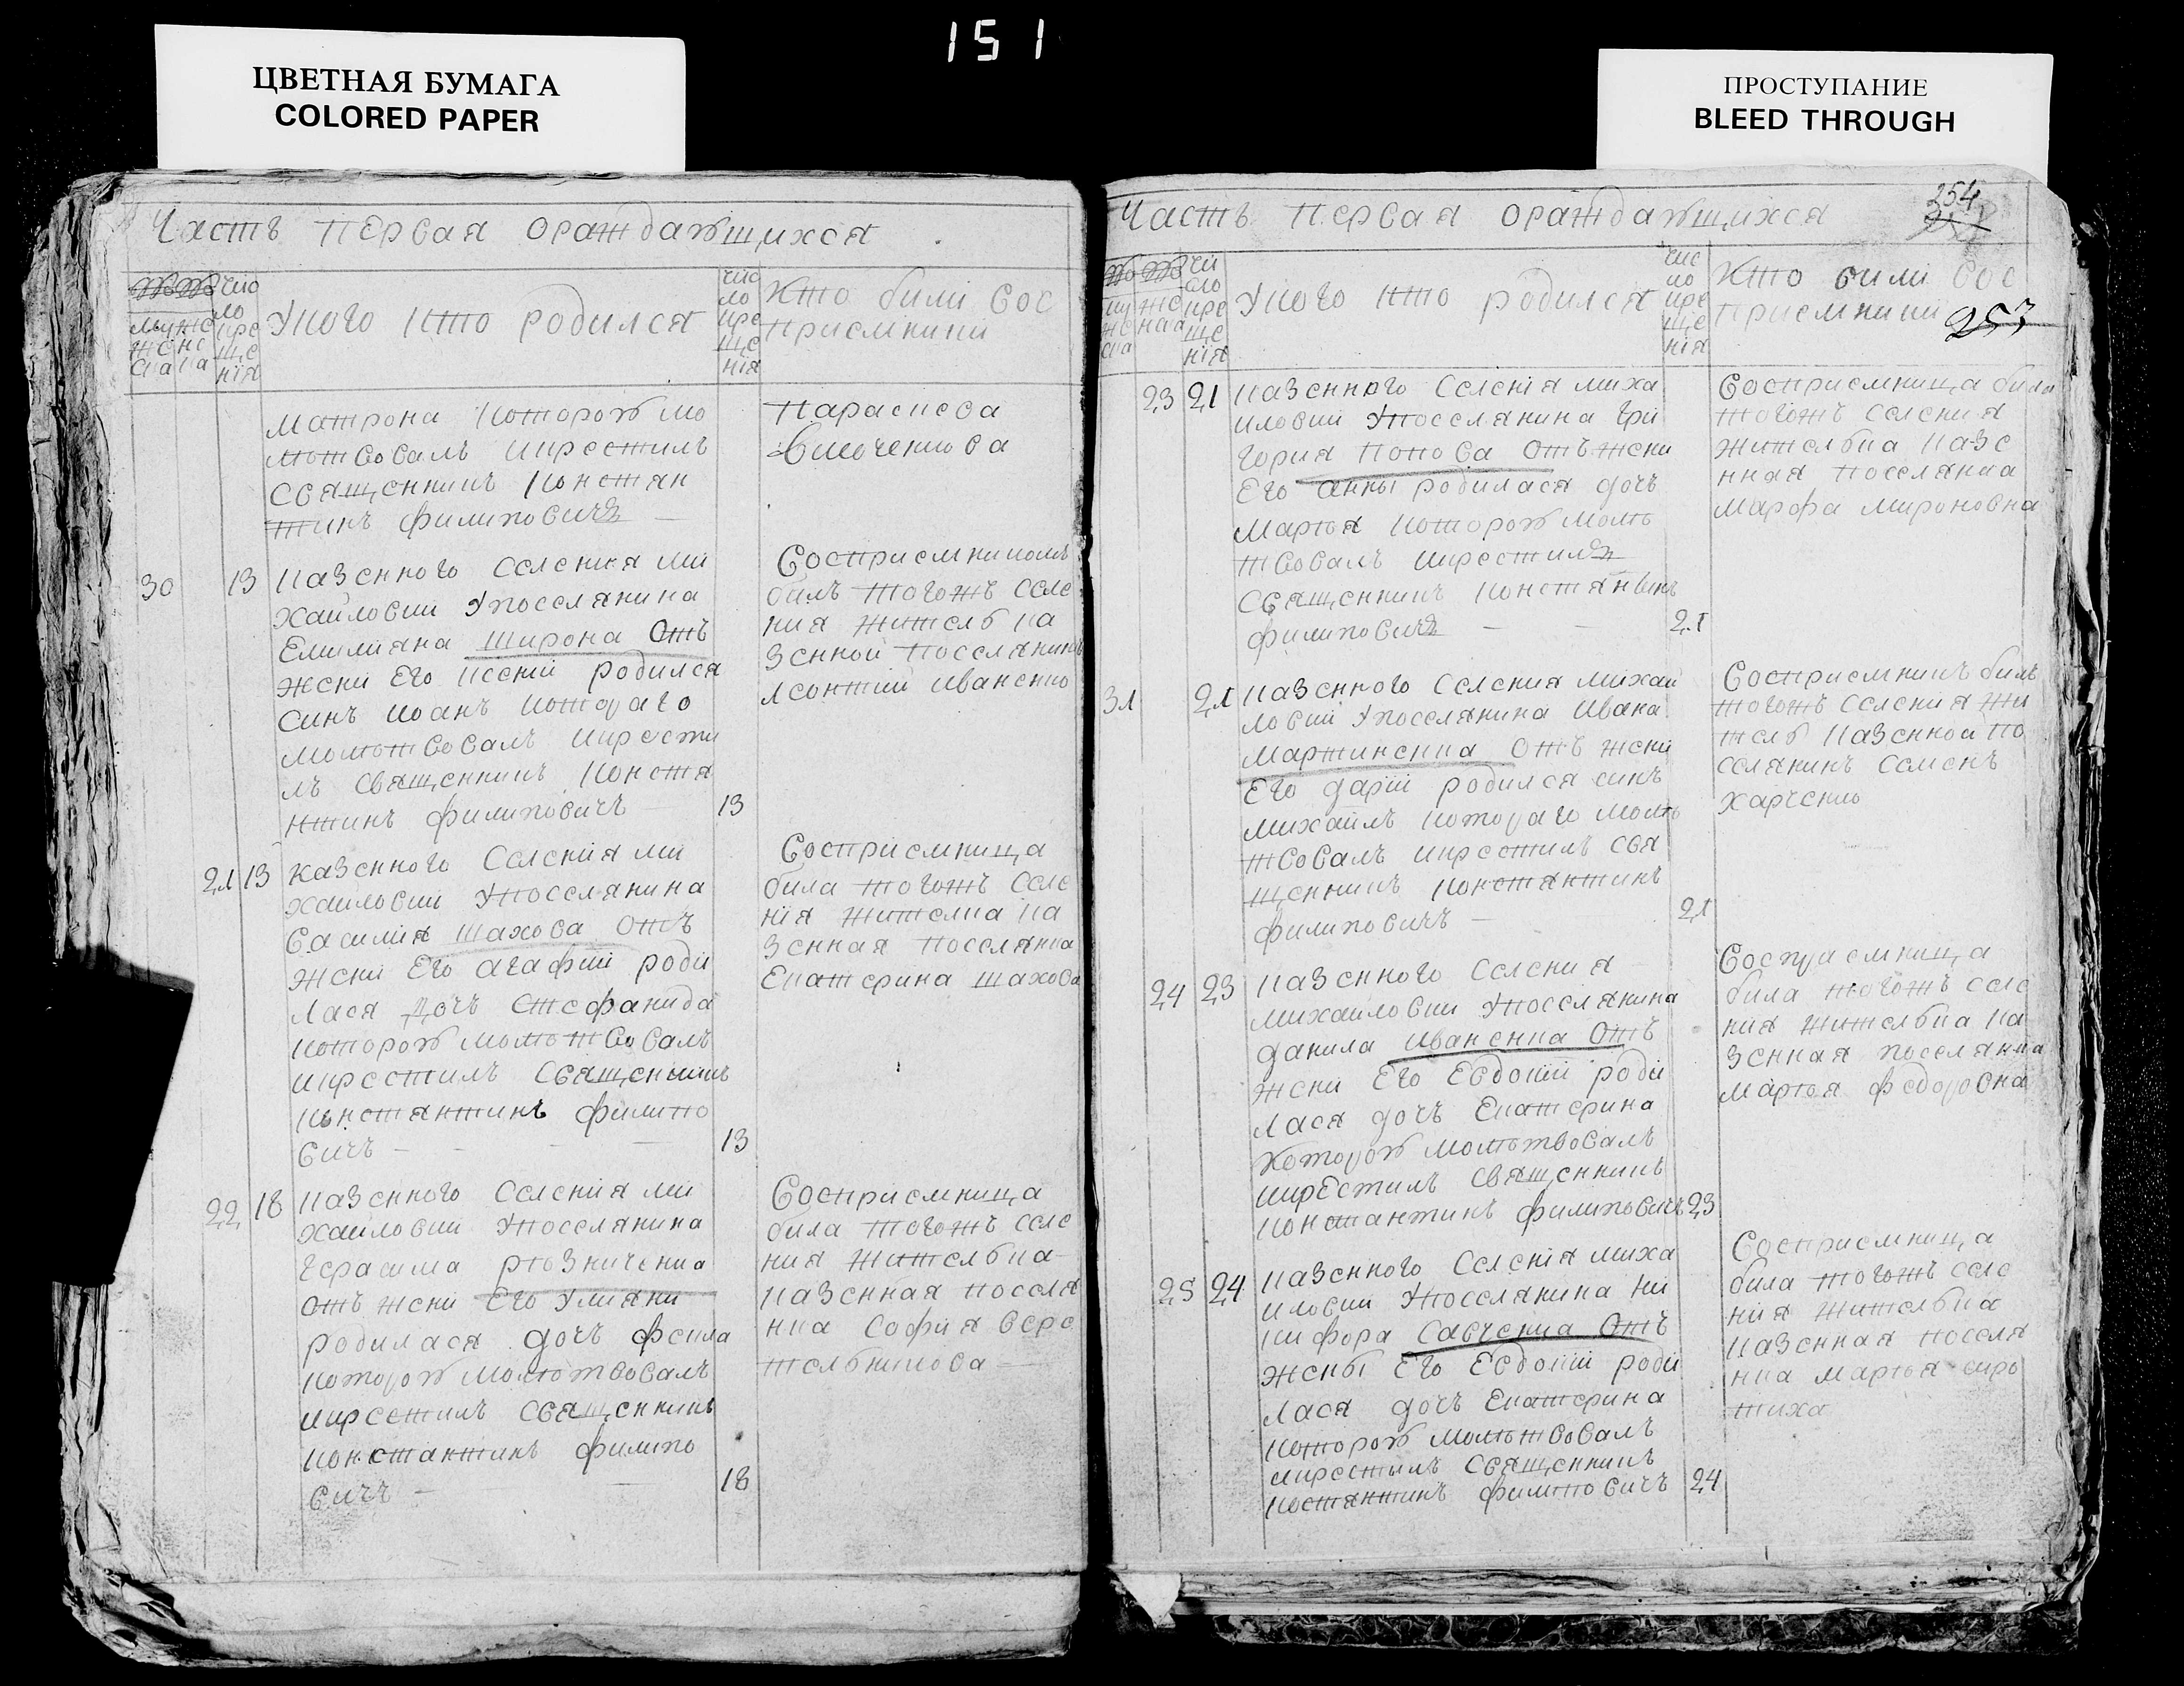 151
ЦВЕТНАЯ БУМАГА
COLORED PAPER
ПРОСТУПАНИЕ
BLEED THROUGH
Часть первая ораждающихся
му
же
ска
же
нс
ка
число
кре
ще
нїя
Укого кто родился
чис
ло
кре
ще
нїя
Кто билі вос
приемники
матрона которою мо
лытвовалъ икрестилъ
Священникъ констан
тинъ филиповичъ —
Параскева
30
13
казенного селения ми
хайловки упоселянина
Емилияна широна Отъ
жени Его ксенїи родился
синъ иоанъ котораго
молытвовалъ икрести
лъ священникъ конста
нтинъ филиповичъ —
13
Восприемникомъ
билъ тогожъ селе
ния житель ка
зенной поселянинъ
леонтий иваненко
21
13
казенного селенїя ми
хаиловки упоселянина
василия шахова Отъ
жени Его агафии роди
лася дочъ стефанида
которою молытвовалъ
икрестилъ священникъ
константинъ филипо
вичъ —
13
Восприемница
била тогожъ селе
нїя жителка ка
зенная поселянка
Екатерина шахова
22
18
казенного селения ми
хаиловки упоселянина
герасима рѣзниченка
отъ жени Его улияни
родилася дочъ фекла
которою молытвовалъ
икрестилъ священникъ
константинъ филипо
вичъ —
18
Восприемница
била тогожъ селе
ния жителька
казенная поселя
нка софия вере
телникова —
Часть первая ораждающихся
254
253
му
же
ска
же
нска
чи
сло
кре
ще
нїя
Укого кто родился
чис
ло
кре
ще
нїя
Кто били вос
приемники
23
21
казенного селенїя миха
иловки упоселянина гри
гория попова отъ жени
Его анны родилася дочъ
Марѳа которою молы
твовалъ икрестилъ
священникъ константинъ
филиповичъ —
21
Восприемница била
тогожъ селения
жителька казе
нная поселянка
марфа мироновна
31
21
казенного селения михаи
ловки упоселянина ивана
мартиненка Отъ жени
Его дарїи родился синъ
михаилъ котораго молы
твовалъ икрестилъ свя
щенникъ константинъ
филиповичъ —
21
Восприемникъ билъ
тогожъ селения жи
тель казенной по
селянинъ семенъ
харченко
24
23
казенного селения
михаиловки упоселянина
данила иваненка Отъ
жени Его Евдокїи роди
лася дочъ Екатерина
которою молытвовалъ
икрестилъ священникъ
константинъ филиповичъ
23
Восприемница
била тогожъ селе
ния жителька ка
зенная поселянка
марѳа федоровна
25
24
казенного селенїя миха
иловки упоселянина ни
кифора савченка Отъ
жены Его Евдокїи роди
лася дочъ Екатерина
которою молытвовалъ
икрестилъ священникъ
костянтинъ филипповичъ
24
Восприемница
била тогожъ селе
нїя жителька
казенная поселя
нка марѳа сиро
тиха